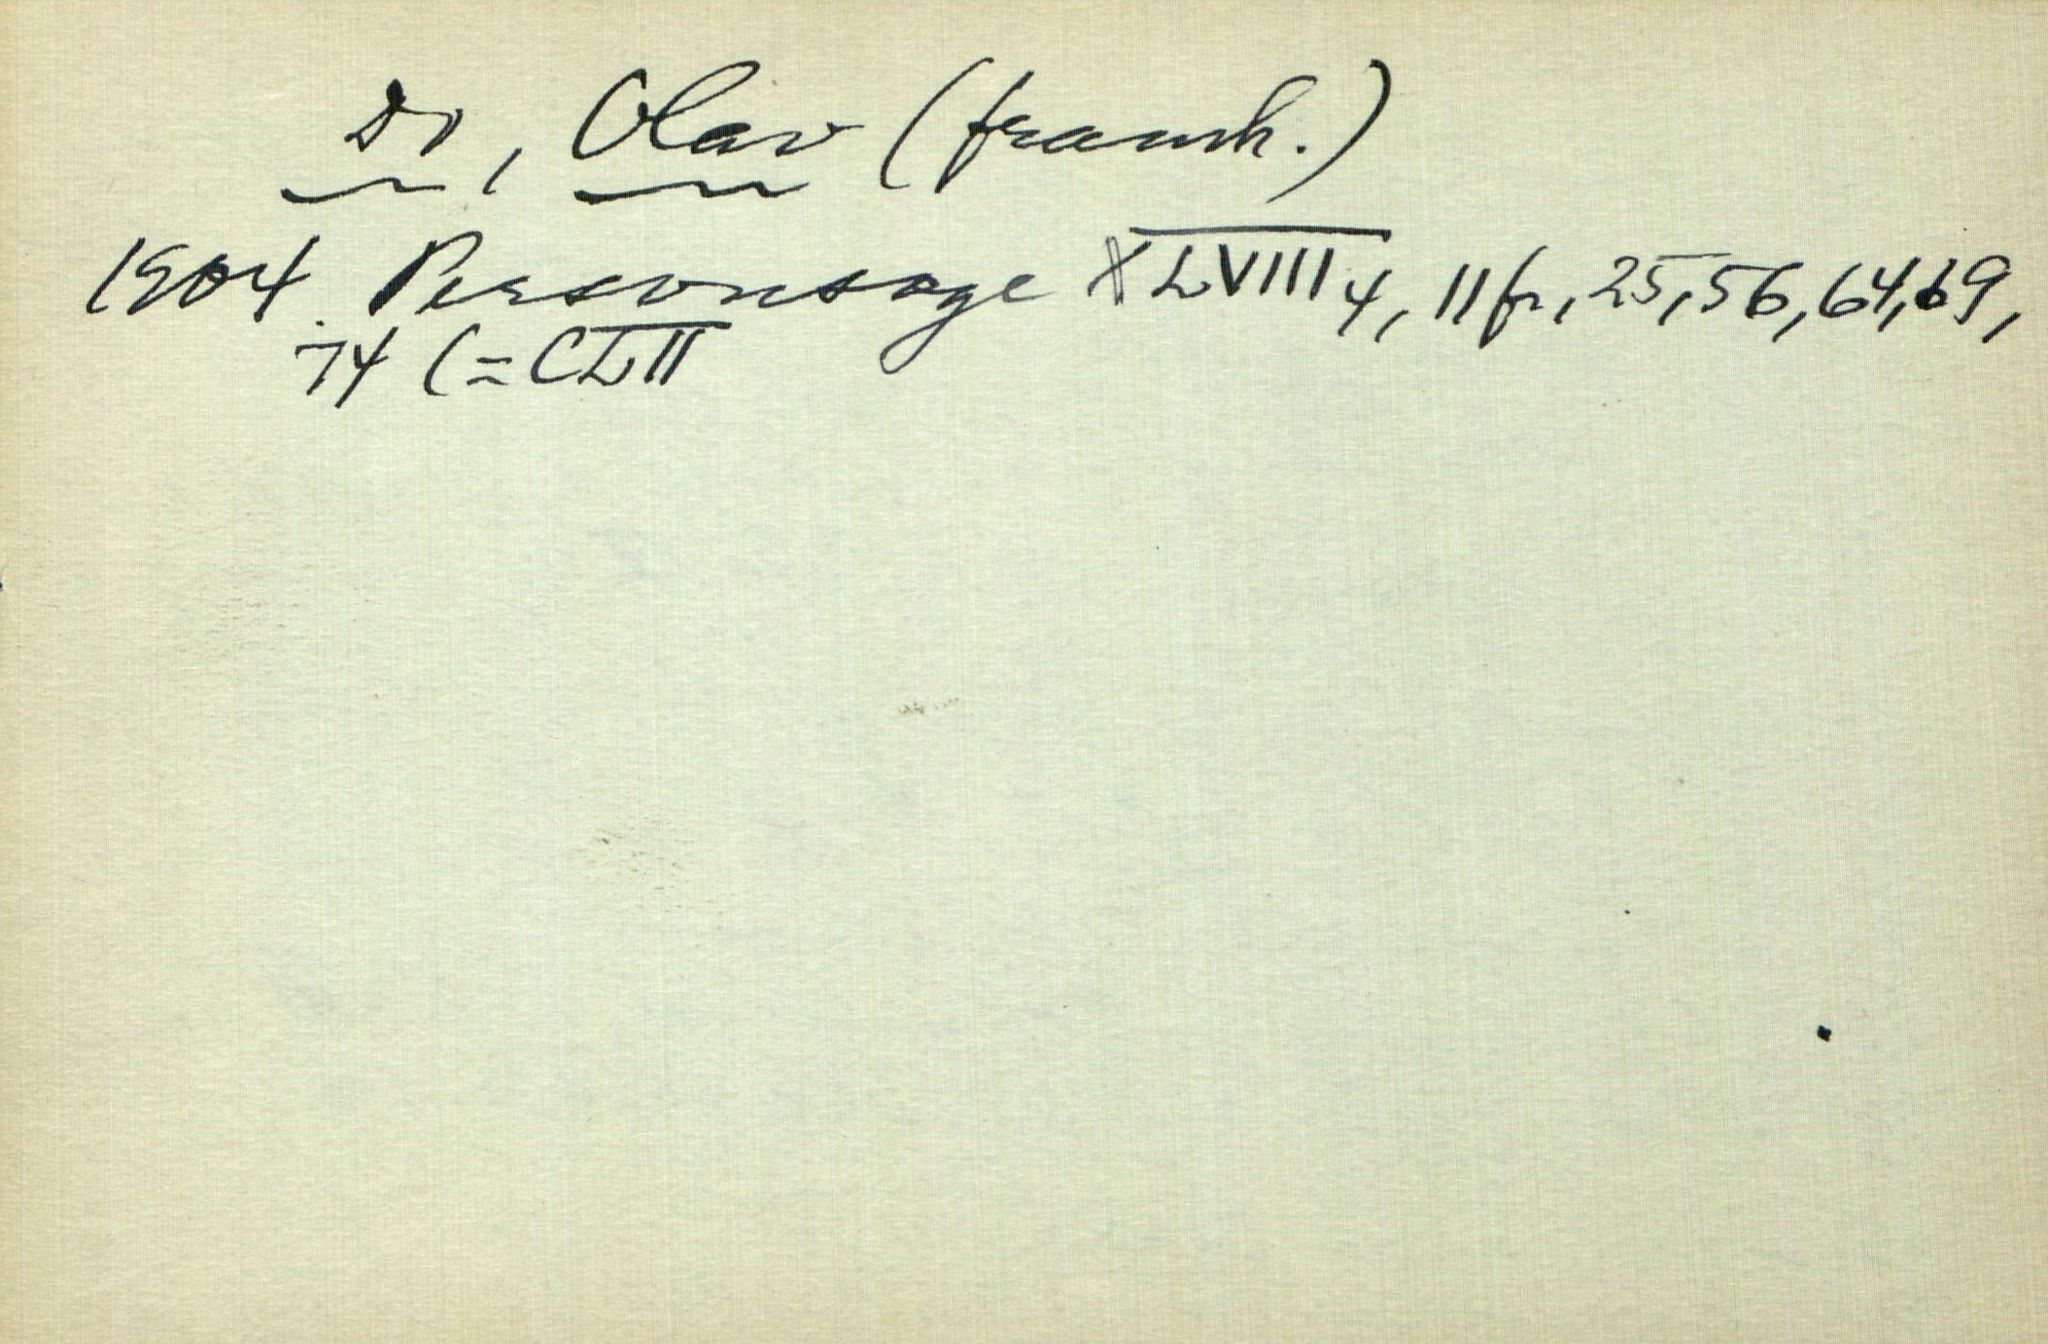 Do, Olav (framh.)
1904 Personsoge XLVIII 4, 11 fr, 25, 56, 64, 69,
74 (=CLII